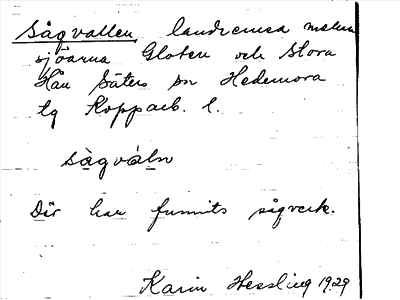 Sågvallen, landremsa mellan
sjöarna Gloten och Stora
Hån Säters sn Hedemora
tg Kopparb. l.
sàgváln
Där har funnits sågverk.
Karin Hessling 1929